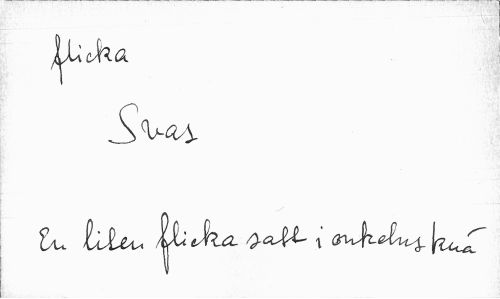 flicka
Svas
En liten flicka satt i onkelns knä